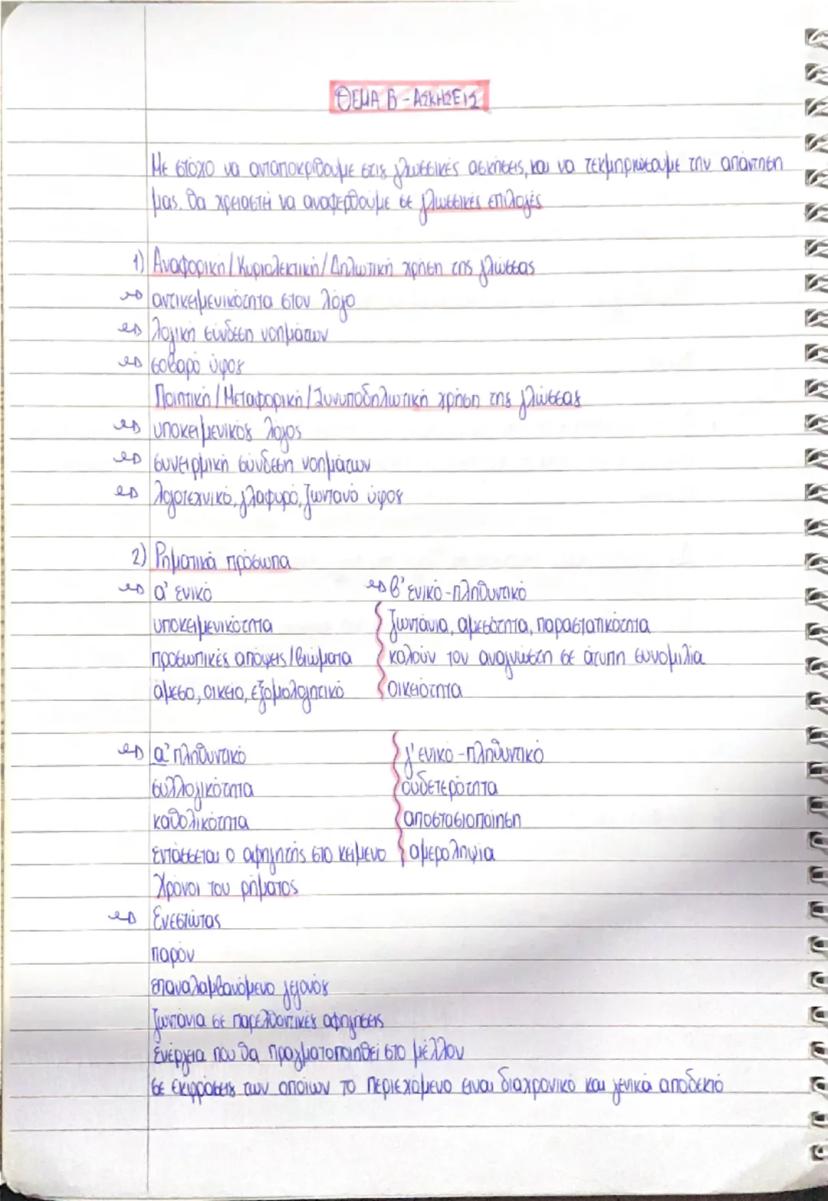 ΘΕΜΑ Β - ΑΣΚΗΣΕΙΣ
Με στόχο να ανταποκριθουμε στις γλωσσικές ασκησεις, και να τεκμηριώσουμε την απάντηση
μας. θα χρειαστεί να αναφερθουμε σε γλωσσικές επιλογές
1) Αναφορική/Κυριολεκτική/Δηλωτική χρήση της γλώσσας
αντικειμενικότητα στον λόγο
λογική σύνδεση νοημάτων
σοβαρό ύφος
Ποιητική/Μεταφορική/Συνυποδηλωτική χρήση της γλώσσας
υποκειμενικός λόγος
συνειρμική σύνδεση νοημάτων
λογοτεχνικό, γλαφυρό, ζωντανό ύφος
2) Ρηματικά πρόσωπα
α' ενικό β' ενικό - πληθυντικό
υποκειμενικότητα ζωντάνια, αμεσότητα, παραστατικότητα
προσωπικές απόψεις/βιώματα καλούν τον αναγνώστη σε άτυπη συνομιλία
άμεσο, οικείο, εξομολογητικό οικειότητα
α' πληθυντικό γ' ενικό - πληθυντικό
συλλογικότητα ουδετερότητα
καθολικότητα αποστασιοποίηση
εντάσσεται ο αφηγητής στο κείμενο αμεροληψία
Χρόνοι του ρήματος
Ενεστώτας
παρόν
επαναλαμβανόμενο γεγονός
ζωντάνια σε παρελθοντικές αφηγήσεις
ενέργεια που θα πραγματοποιηθεί στο μέλλον
σε εκφράσεις των οποίων το περιεχόμενο ειναι διαχρονικό και γενικά αποδεκτό